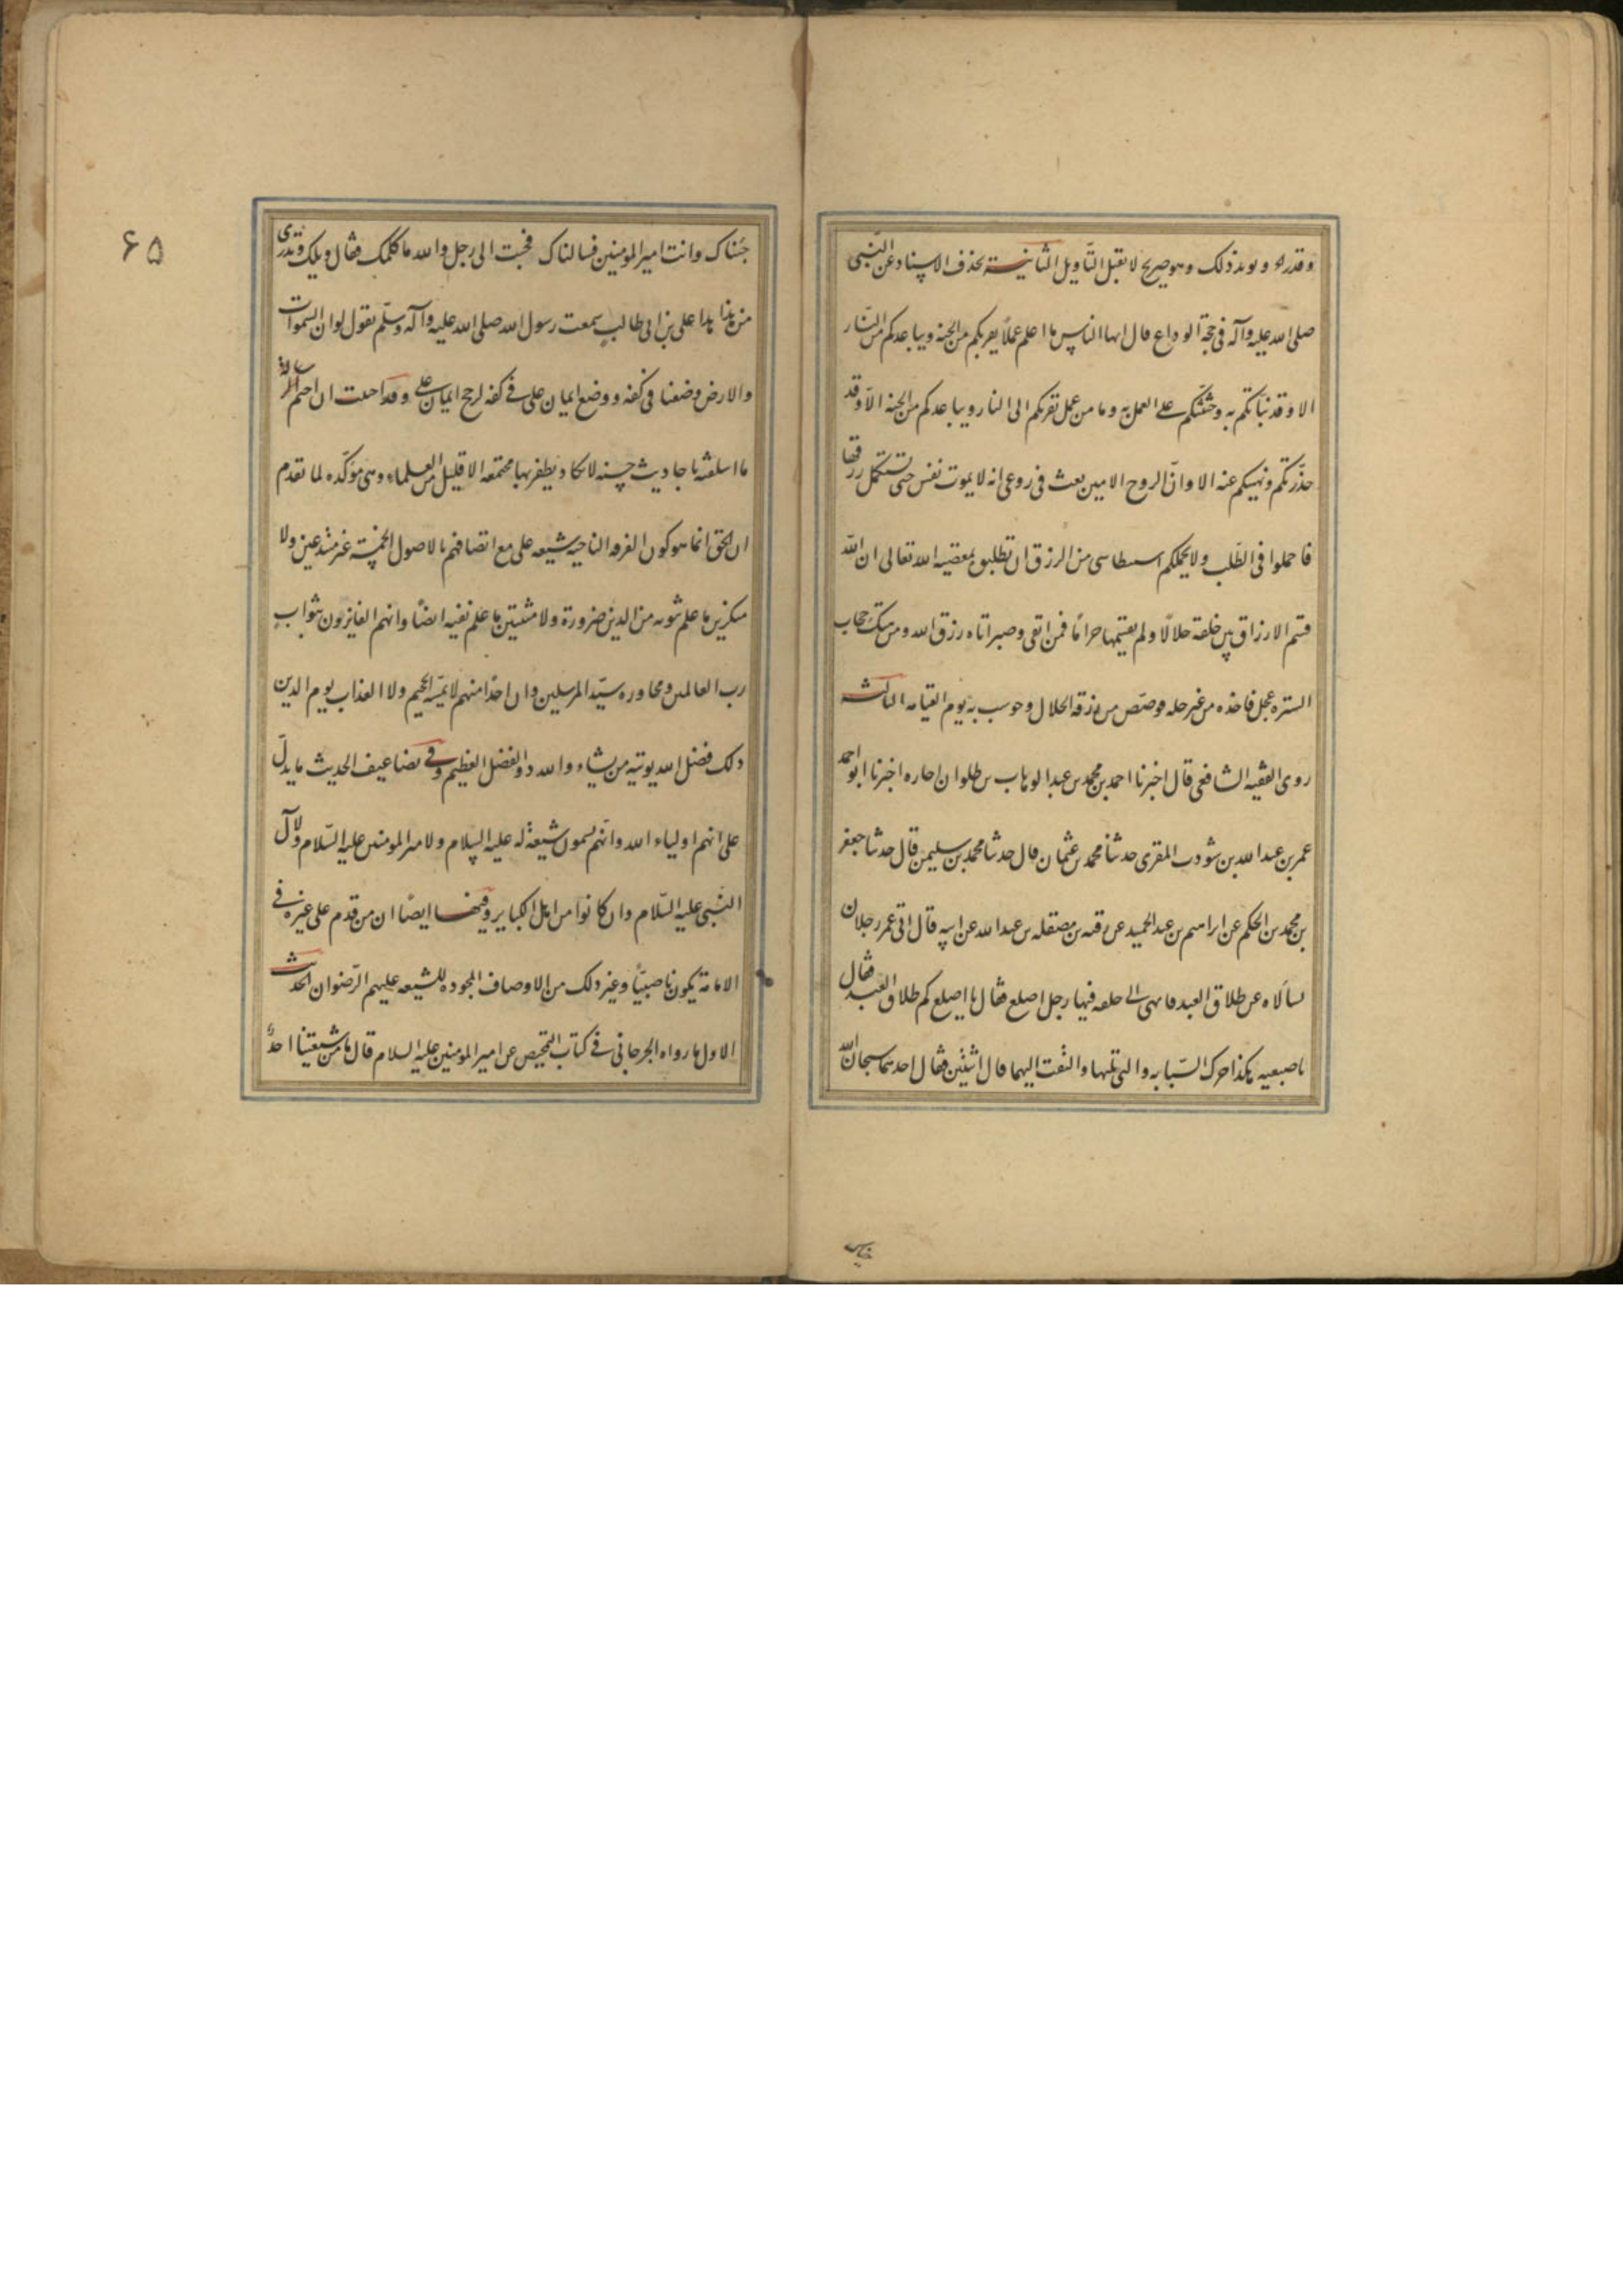 وقدراه ويويد ذلك وهو صريح لا يقبل التأويل الثانية بحذف الاسناد عن النبى
صلى الله عليه وآله فى حجة الوداع قال ايها الناس ما اعلم عملا يقربكم من الجنة ويباعدكم من النار
الا وقد نبأتكم به وحثثتكم على العمل به وما من عمل يقربكم الى النار ويباعدكم من الجنه الا وقد
حذرتكم ونهيتكم عنه الا وان الروح الامين نفث فى روعى انه لا يموت نفس حتى تستكمل رزقها
فاجملوا فى الطلب ولا يحملكم استبطا شى من الرزق ان تطلبوه بمعصية الله تعالى ان الله
قسم الارزاق بين خلقه حلالا ولم يقسمها حراما فمن اتقى وصبر اتاه رزق الله ومن هتك حجاب
الستر وعجل فاخذه من غير حله قوصص من رزقه الحلال وحوسب به يوم القيامه الثالثه
روى الفقيه الشافعى قال اخبرنا احمد بن محمد بن عبد الوهاب بن طاوان اجازه اخبرنا ابو احمد
عمر بن عبد الله بن شوذب المقرى حدثنا محمد بن عثمان قال حدثنا محمد بن سليمن قال حدثنا جعفر
بن محمد بن الحكم عن ابراهيم بن عبد الحميد عن رقبه بن مصقله بن عبد الله عن ابيه قال اتى عمر رجلان
يسألاه عن طلاق العبد فانتهى الى حلقه فيها رجل اصلع فقال يا اصلع كم طلاق العبد فقال
باصبعيه هكذا حرك السبابه والتى تليها والتفت اليهما قال اثنين فقال احدهما سبحان الله
جئناك
۶۵
جئناك وانت امير المومنين فسالناك فجئت الى رجل والله ما كلمك فقال ويلك تدرى
من هذا هذا على بن ابى طالب سمعت رسول الله صلى الله عليه وآله وسلم يقول لو ان السموات
والارض وضعتا فى كفه ووضع ايمان على فى كفه لرجح ايمان على وقد احببت ان اختم الرسالة
ما اسلفته باحاديث حسنه لا يكاد يظفر بها مجتمعه الا قليل من العلماء وهى مؤكده لما تقدم
ان الحق انما هو كون الفرقه الناجيه شيعه على مع اتصافهم بالاصول الخمسة غير مبتدعين ولا
منكرين ما علم ثبوته من الدين ضرورة ولا مثبتين ما علم نفيه ايضا وانهم الفايزون بثواب
رب العالمين ومجاوره سيد المرسلين وان احدا منهم لا يمسه الجحيم ولا العذاب يوم الدين
ذلك فضل الله يوتيه من يشاء والله ذو الفضل العظيم وفى تضاعيف الحديث ما يدل
على انهم اولياء الله وانهم يسمون شيعة له عليه السلام ولامير المومنين عليه السلام ولآل
النبى عليه السلام وان كانوا من اهل الكباير وفيها ايضا ان من قدم على غيره فى
الامامة يكون ناصبيا وغير ذلك من الاوصاف المحموده للشيعه عليهم الرضوان الحديث
الاول ما رواه الجرجانى فى كتاب التمحيص عن امير المومنين عليه السلام قال ما من شيعتنا احد